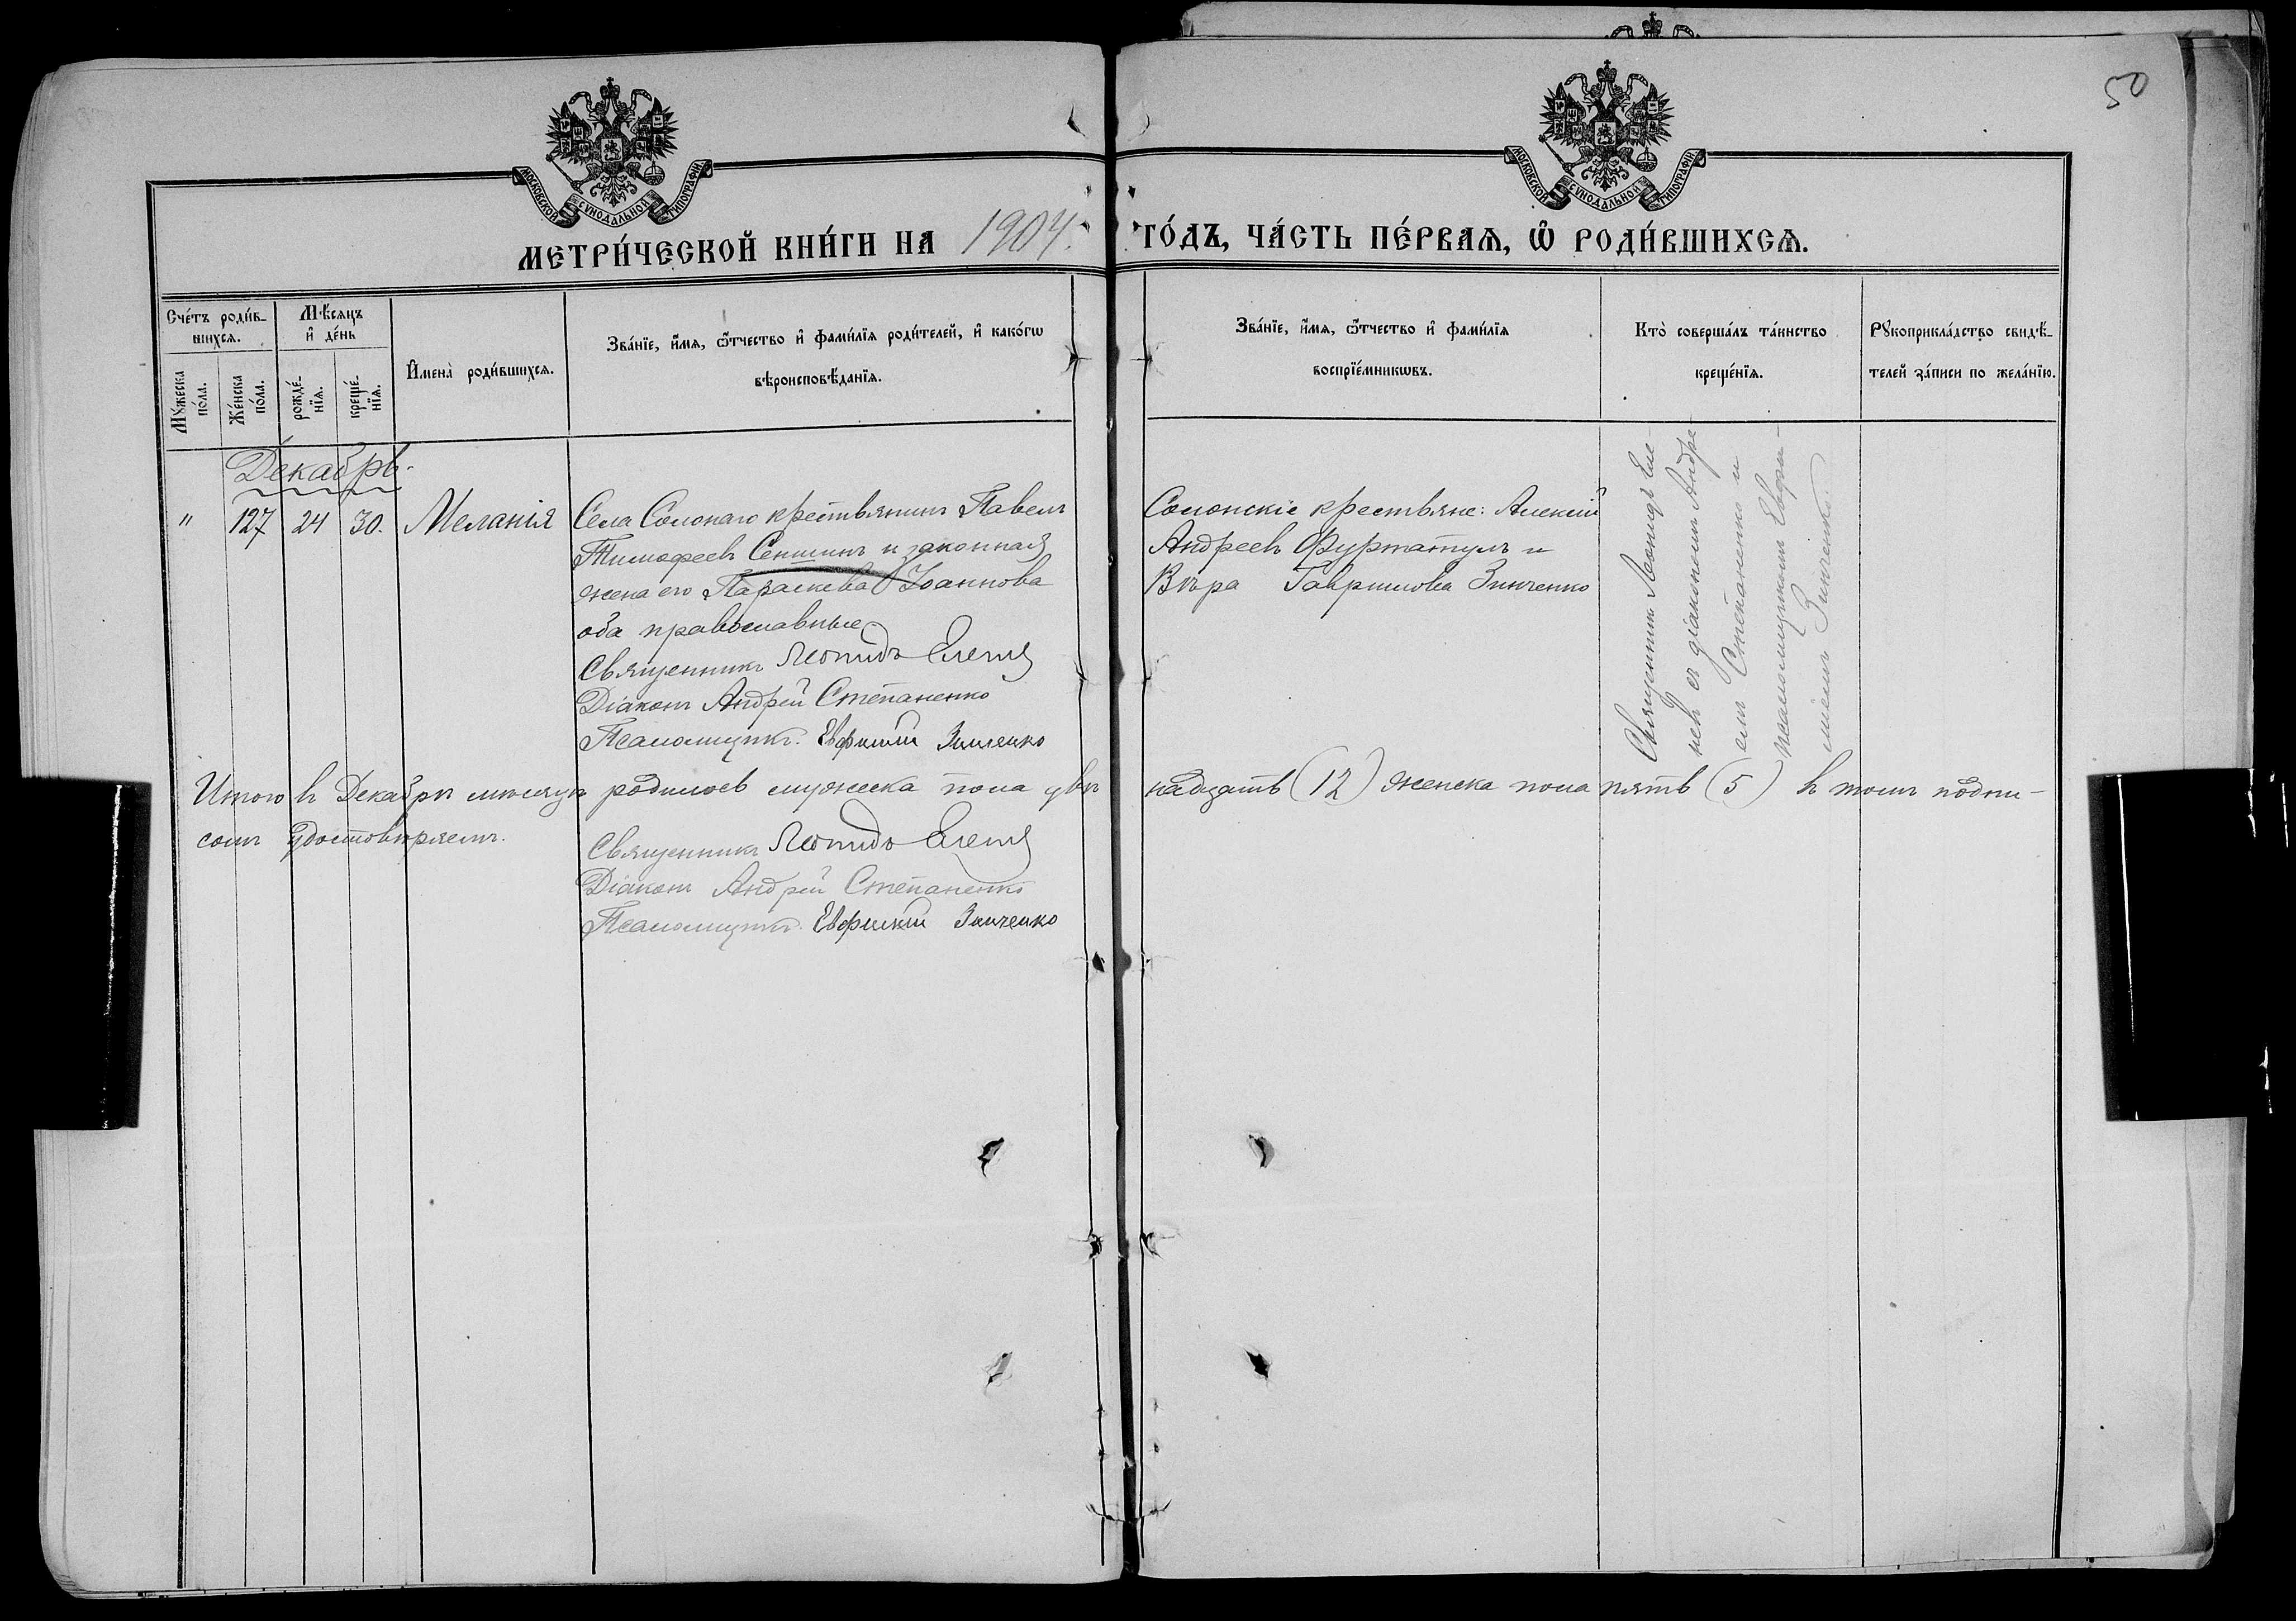 50
МОСКОВСКОЙ СУНОДАЛЬНОЙ ТИПОГРАФІИ
МОСКОВСКОЙ СУНОДАЛЬНОЙ ТИПОГРАФІИ
МЕТРИ́ЧЕСКОЙ КНИ́ГИ НА 1904. ГО́ДЪ, ЧА́СТЬ ПЕ́РВАЯ, Ѡ РОДИ́ВШИХСЯ.
Сче́тъ роди́в-
шихся.
Мѣ́сяцъ
и де́нь
Му́жеска
по́ла.
Же́нска
по́ла.
рожде́-
нїя.
креще́-
нїя.
Имена̀ роди́вшихся.
Зва́нїе, и́мя, ѻ҆́тчество и фами́лїя роди́телей, и како́гѡ
вѣроисповѣ́данїя.
Зва́нїе, и́мя, ѻ҆́тчество и фами́лїя
воспрїе́мникѡвъ.
Кто̀ соверша́лъ та́инство
креще́нїя.
Рꙋкоприкла́дство свидѣ́-
телей за́писи по жела́нїю.
Декабрь.
" 127 24 30. Меланія
Села Солонаго крестьянинъ Павелъ
Тимофеевъ Сепшинъ и законная
жена его Параскева Іоаннова
оба православные.
Священникъ Леонидъ
Діаконъ Андрей Степаненко
Псаломщикъ. Евфимій Зинченко
Солонскіе крестьяне: Алексій
Андреевъ Фуртатулъ и
Вѣра Гавриилова Зинченко
Священникъ Леонидъ Еле-
невъ съ діакономъ Андре-
емъ Степаненко и
псаломщикомъ Евфи-
міемъ Зинченко.
Итого въ Декабрѣ мѣсяцѣ родилось мужеска пола двѣнадцать (12) женска пола пять (5) въ томъ подпи-
сомъ удостовѣряемъ.
Священникъ Леонидъ
Діаконъ Андрей Степаненко
Псаломщикъ. Евфимій Зинченко